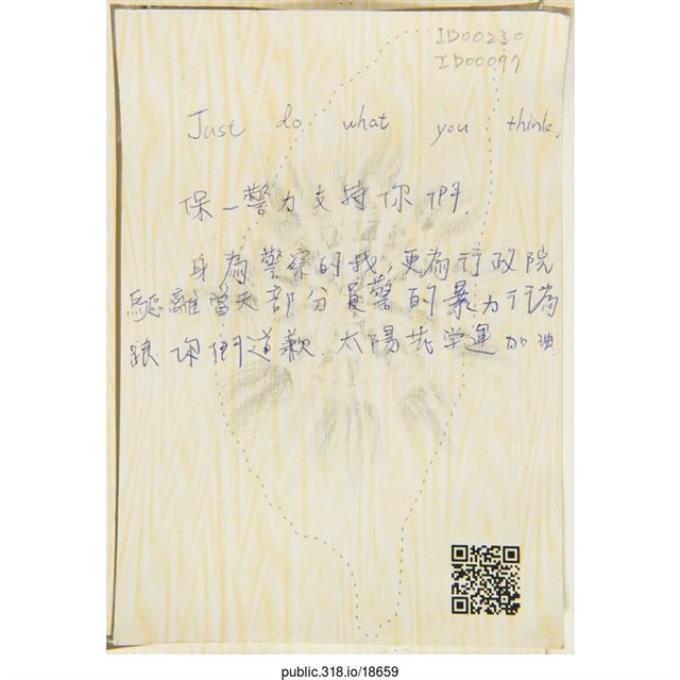 ID00230
ID00097
Just do what you think.
保一警力支持你們.
身為警察的我,更為行政院
驅離當天部分員警的暴力行為
跟你們道歉.太陽花学運加油
public.318.io/18659